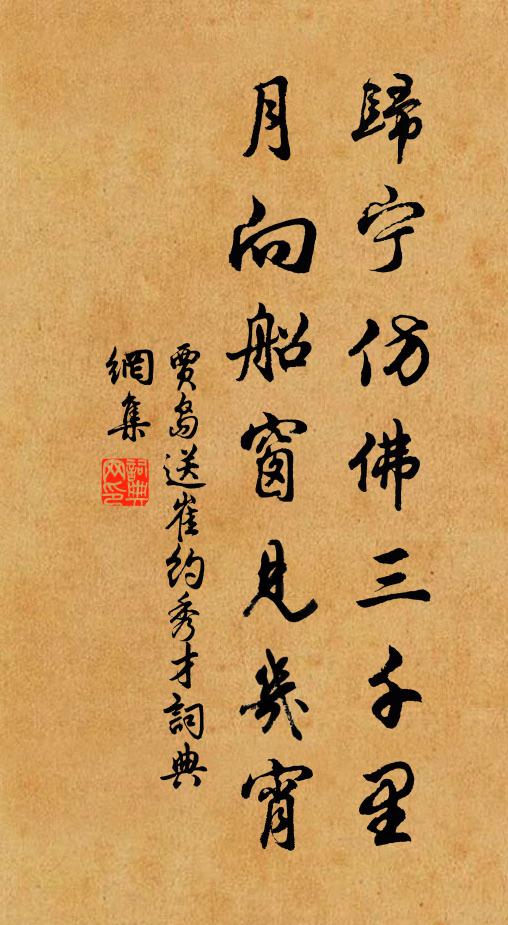 歸宁仿佛三千里
月向船窗見幾宵
賈島送崔約秀才詞典
網集
詞典網印